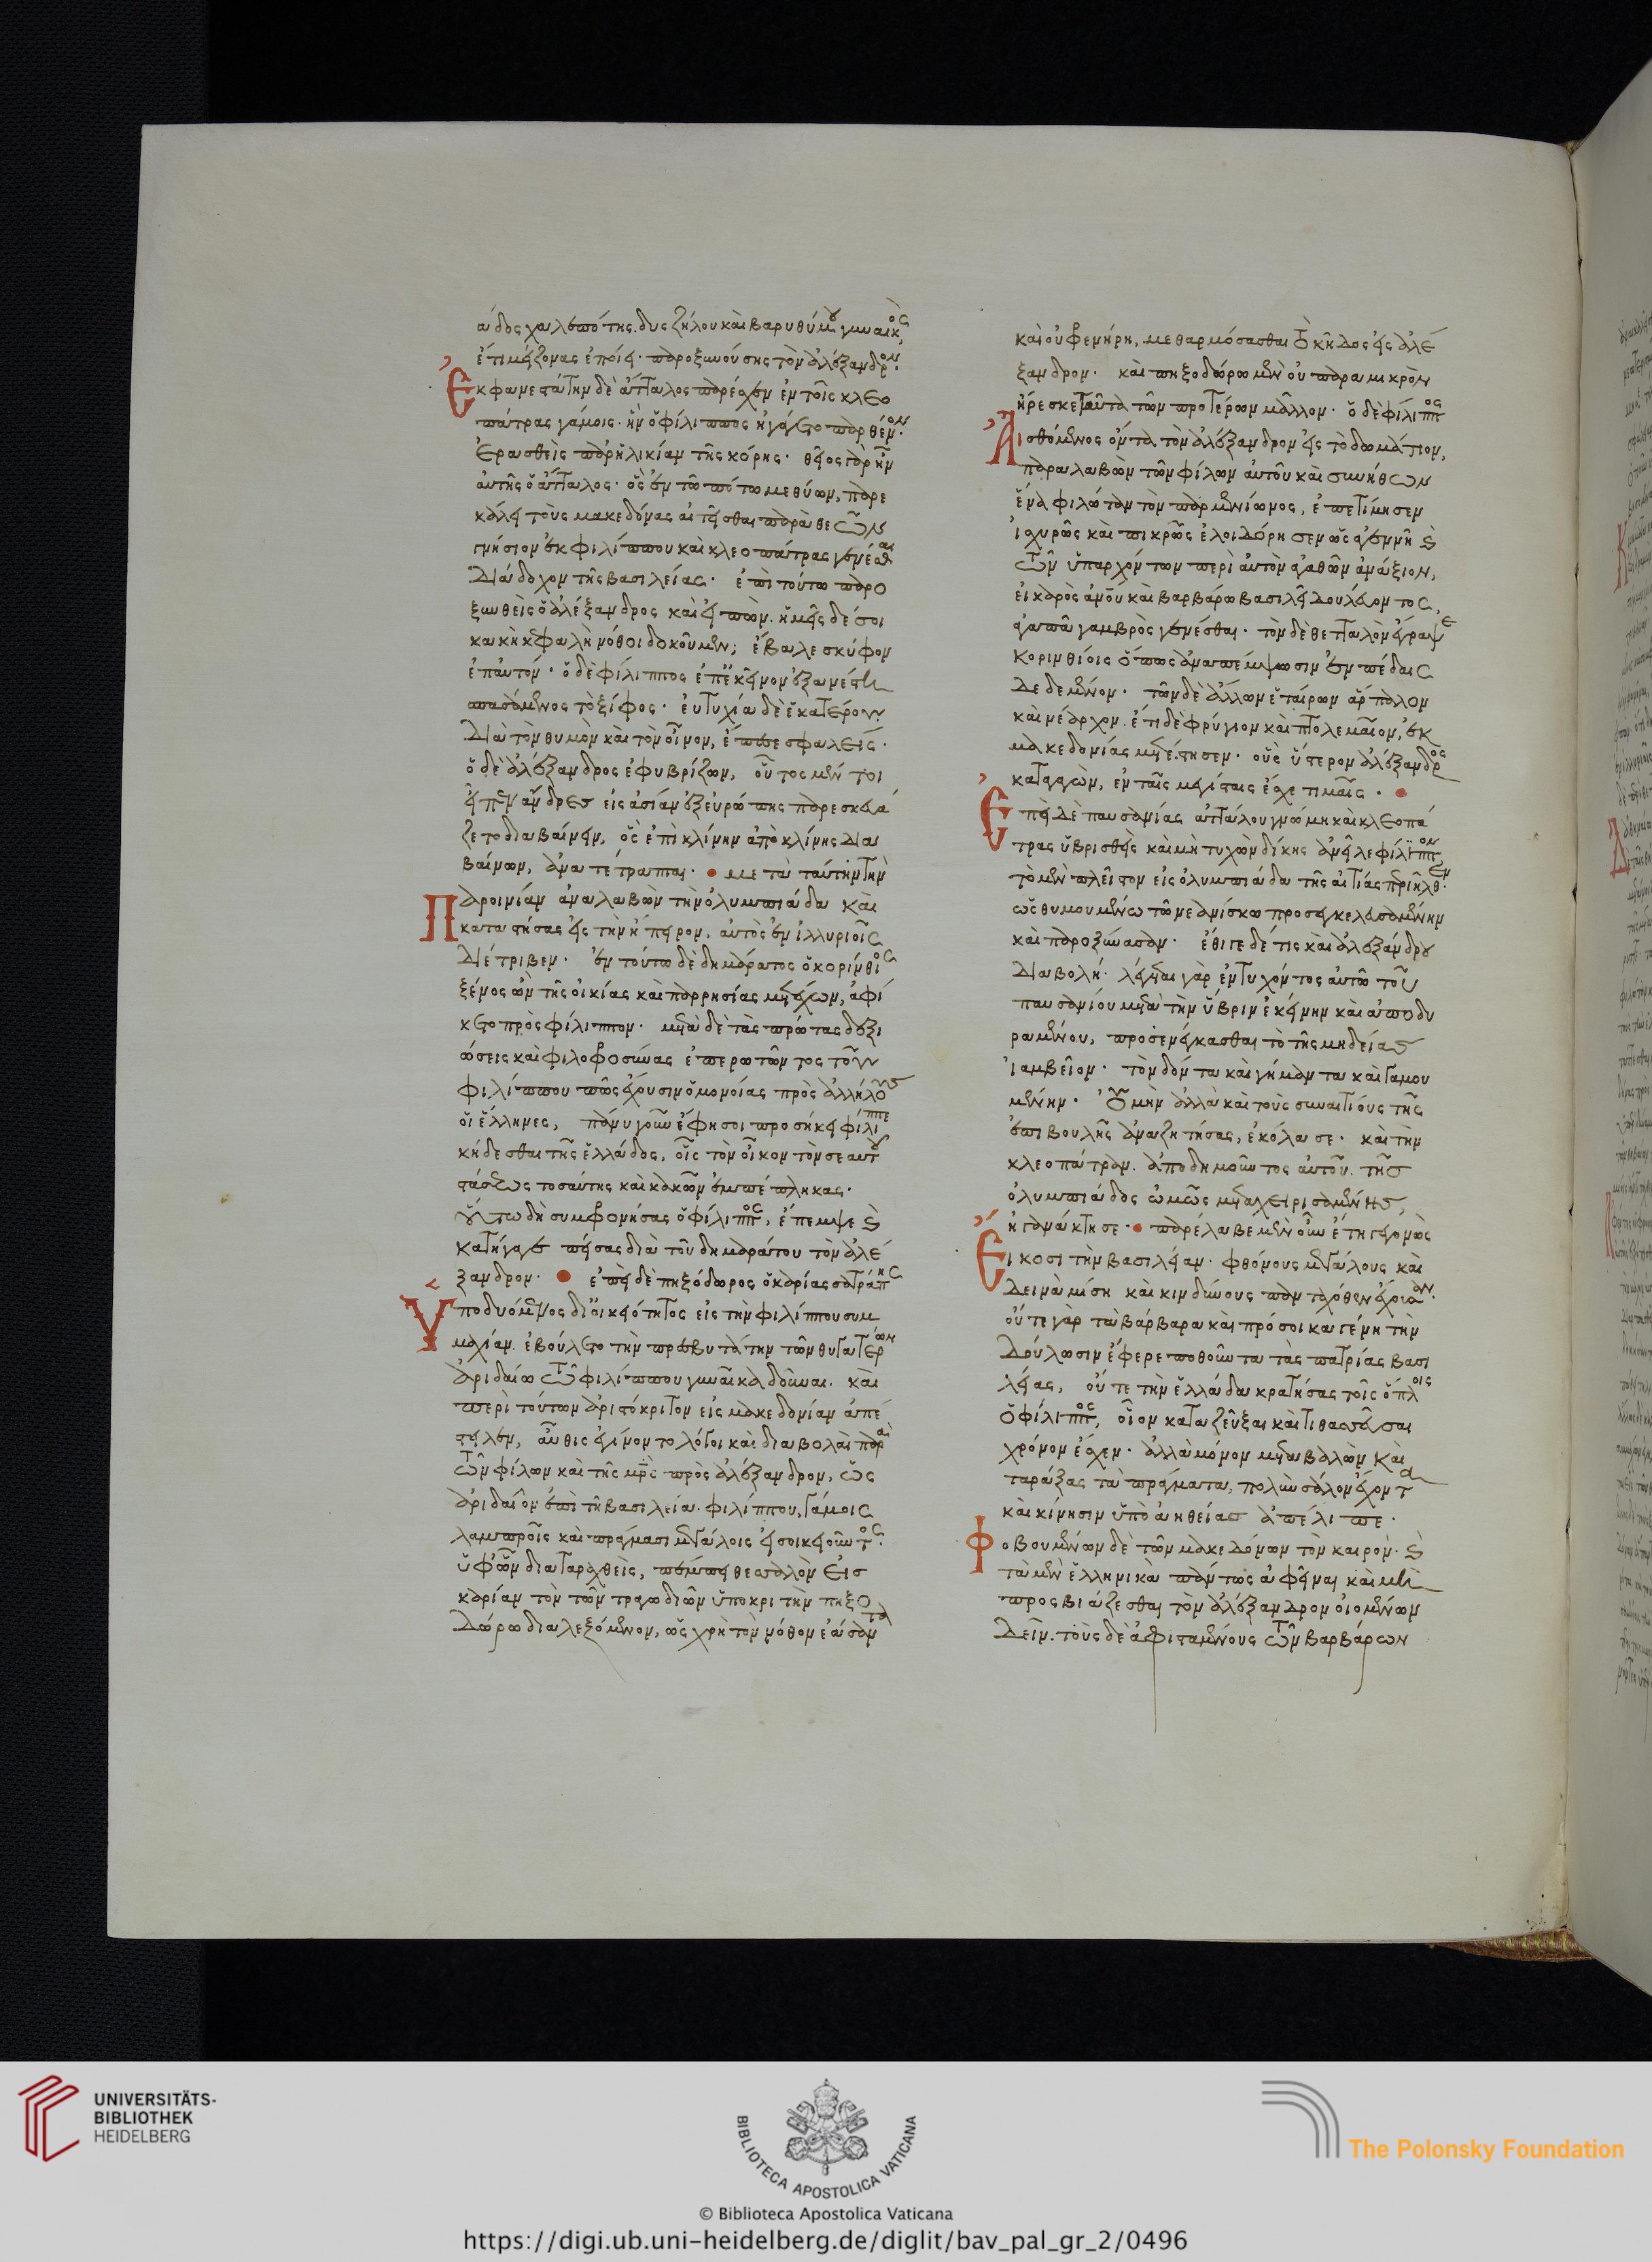 άδος χαλεπότης. δυσζήλου καὶ βαρυθύμου γυναικὸς
ἔτι μείζονας ἐποίει· παροξυνούσης τὸν ἀλέξανδρον.
Ἐκφανεστάτην δὲ ἄτταλος παρέσχεν ἐν τοῖς κλεο
πάτρας γάμοις· ἣν ὁ φίλιππος ἠγάγετο παρθένον·
ἐρασθεὶς παρ' ἡλικίαν τῆς κόρης· θεῖος γὰρ ἦν
αὐτῆς ὁ ἄτταλος· ὃς ἐν τῶ πότω μεθύων, παρε
κάλει τοὺς μακεδόνας αἰτεῖσθαι παρὰ θεῶν
γνήσιον ἐκ φιλίππου καὶ κλεοπάτρας γενέσθαι
διάδοχον τῆς βασιλείας· ἐπὶ τούτω παρο
ξυνθεὶς ὁ ἀλέξανδρος καὶ εἰπών. ἡμεῖς δέ σοι
κακὴ κεφαλὴ νόθοι δοκοῦμεν; ἔβαλε σκύφον
ἐπ' αὐτόν· ὁ δὲ φίλιππος ἐπ' ἐκεῖνον ἐξανέστη
σπασάμενος τὸ ξίφος· εὐτυχία δὲ ἑκατέρου.
διὰ τὸν θυμὸν καὶ τὸν οἶνον, ἔπεσε σφαλείς·
ὁ δὲ ἀλέξανδρος ἐφυβρίζων, οὗτος μέν τοι
εἶπεν ἄνδρες εἰς ἀσίαν ἐξ εὐρώπης παρεσκευά
ζετο διαβαίνειν, ὃς ἐπὶ κλίνην ἀπὸ κλίνης δια
βαίνων, ἀνατέτραπται· μετὰ ταύτην τὴν
Παροινίαν ἀναλαβὼν τὴν ὀλυμπιάδα καὶ
καταστήσας εἰς τὴν ἤπειρον, αὐτὸς ἐν ἰλλυριοῖς
διέτριβεν· ἐν τούτω δὲ δημάρατος ὁ κορίνθιος
ξένος ὢν τῆς οἰκίας καὶ παρρησίας μετέχων, ἀφί
κετο πρὸς φίλιππον· μετὰ δὲ τὰς πρώτας δεξι
ώσεις καὶ φιλοφροσύνας ἐπερωτῶντος τοῦ
φιλίππου πῶς ἔχουσιν ὁμονοίας πρὸς ἀλλήλους
οἱ ἕλληνες, πάνυ γοῦν ἔφη σοι προσήκει φίλιππε
κήδεσθαι τῆς ἑλλάδος, ὃς τὸν οἶκον τὸν σεαυτοῦ
στάσεως τοσαύτης καὶ κακῶν ἐμπέπληκας·
οὕτω δὴ συμφρονήσας ὁ φίλιππος, ἔπεμψε καὶ
κατήγαγε πείσας διὰ τοῦ δημαράτου τὸν ἀλέ
ξανδρον· ἐπεὶ δὲ πηξόδωρος ὁ καρίας σατράπης
Ὑποδυόμενος δι' οἰκειότητος εἰς τὴν φιλίππου συμ
μαχίαν. ἐβούλετο τὴν πρεσβυτάτην τῶν θυγατέρων
ἀριδαίω τῶ φιλίππου γυναῖκα δοῦναι· καὶ
περὶ τούτων ἀριστόκριτον εἰς μακεδονίαν ἀπέ
στειλεν, αὖθις ἐγίνοντο λόγοι καὶ διαβολαὶ παρὰ
τῶν φίλων καὶ τῆς μρς πρὸς ἀλέξανδρον, ὡς
ἀριδαῖον ἐπὶ τῆ βασιλεία. φιλίππου, γάμοις
λαμπροῖς καὶ πράγμασι μεγάλοις εἰσοικειοῦντος·
ὑφ' ὧν διαταραχθεὶς, πέμπει θεσσαλὸν εἰς
καρίαν τὸν τῶν τραγωδιῶν ὑποκριτὴν πηξο
δώρω διαλεξόμενον, ὡς χρὴ τὸν νόθον ἐάσαντα
καὶ οὐ φρενήρη, μεθαρμόσασθαι τὸ κῆδος εἰς ἀλέ
ξανδρον· καὶ πηξοδώρω μὲν οὐ παρὰ μικρὸν
ἤρεσκε ταῦτα τῶν προτέρων μᾶλλον· ὁ δὲ φίλιππος
Αἰσθόμενος ὄντα τὸν ἀλέξανδρον εἰς τὸ δωμάτιον,
παραλαβὼν τῶν φίλων αὐτοῦ καὶ συνήθων
ἕνα φιλώταν τὸν παρμενίωνος, ἐπετίμησεν
ἰσχυρῶς καὶ πικρῶς ἐλοιδόρησεν ὡς ἀγεννῆ καὶ
τῶν ὑπαρχόντων περὶ αὐτὸν ἀγαθῶν ἀνάξιον,
εἰ καρὸς ἀνοῦ καὶ βαρβάρω βασιλεῖ δουλεύοντος,
ἀγαπᾶ γαμβρὸς γενέσθαι· τὸν δὲ θετταλὸν ἔγραψε
κορινθίοις ὅπως ἀναπέμψωσιν ἐν πέδαις
δεδεμένον· τῶν δὲ ἄλλων ἑταίρων ἅρπαλον
καὶ νέαρχον. ἔτι δὲ φρύγιον καὶ πτολεμαῖον, ἐκ
μακεδονίας μετέστησεν· οὓς ὕστερον ἀλέξανδρος
καταγαγὼν, ἐν ταῖς μεγίσταις ἔσχε τιμαῖς·
Ἐπεὶ δὲ παυσανίας ἀττάλου γνώμη καὶ κλεοπά
τρας ὑβρισθεὶς καὶ μὴ τυχὼν δίκης ἀνεῖλε φίλιππον,
τὸ μὲν πλεῖστον εἰς ὀλυμπιάδα τῆς αἰτίας περιῆλθεν.
ὡς θυμουμένω τῶ νεανίσκω προσεγκελευσαμένην
καὶ παροξύνασαν· ἔθιγε δέ τις καὶ ἀλεξάνδρου
διαβολή· λέγεται γὰρ ἐντυχόντος αὐτῶ τοῦ
παυσανίου μετὰ τὴν ὕβριν ἐκείνην καὶ ἀποδυ
ρομένου, προσενέγκασθαι τὸ τῆς μηδείας
ἰαμβεῖον· τὸν δόντα καὶ γήμαντα καὶ γαμου
μένην· Οὐ μὴν ἀλλὰ καὶ τοὺς συναιτίους τῆς
ἐπιβουλῆς ἀναζητήσας, ἐκόλασε· καὶ τὴν
κλεοπάτραν. ἀποδημοῦντος αὐτοῦ. τῆς
ὀλυμπιάδος ὠμῶς μεταχειρισαμένης,
ἠγανάκτησε· παρέλαβε μὲν οὖν ἔτη γεγονὼς
Εἴκοσι τὴν βασιλείαν. φθόνους μεγάλους καὶ
δεινὰ μίση καὶ κινδύνους πανταχόθεν ἔχουσαν·
οὔτε γὰρ τὰ βάρβαρα καὶ πρόσοικα γένη τὴν
δούλωσιν ἔφερε ποθοῦντα τὰς πατρίας βασι
λείας, οὔτε τὴν ἑλλάδα κρατήσας τοῖς ὅπλοις
ὁ φίλιππος, οἷον καταζεῦξαι καὶ τιθασσεῦσαι
χρόνον ἔσχεν· ἀλλὰ μόνον μεταβαλὼν καὶ
ταράξας τὰ πράγματα, πολὺν σάλον ἔχοντα
καὶ κίνησιν ὑπὸ ἀηθείας ἀπέλιπε·
Φοβουμένων δὲ τῶν μακεδόνων τὸν καιρόν· καὶ
τὰ μὲν ἑλληνικὰ πάντως ἀφεῖναι καὶ μὴ
προσβιάζεσθαι τὸν ἀλέξανδρον οἰομένων
δεῖν. τοὺς δὲ ἀφισταμένους τῶν βαρβάρων
UNIVERSITÄTS-
BIBLIOTHEK
HEIDELBERG
BIBLIOTECA APOSTOLICA VATICANA
The Polonsky Foundation
© Biblioteca Apostolica Vaticana
https://digi.ub.uni-heidelberg.de/diglit/bav_pal_gr_2/0496